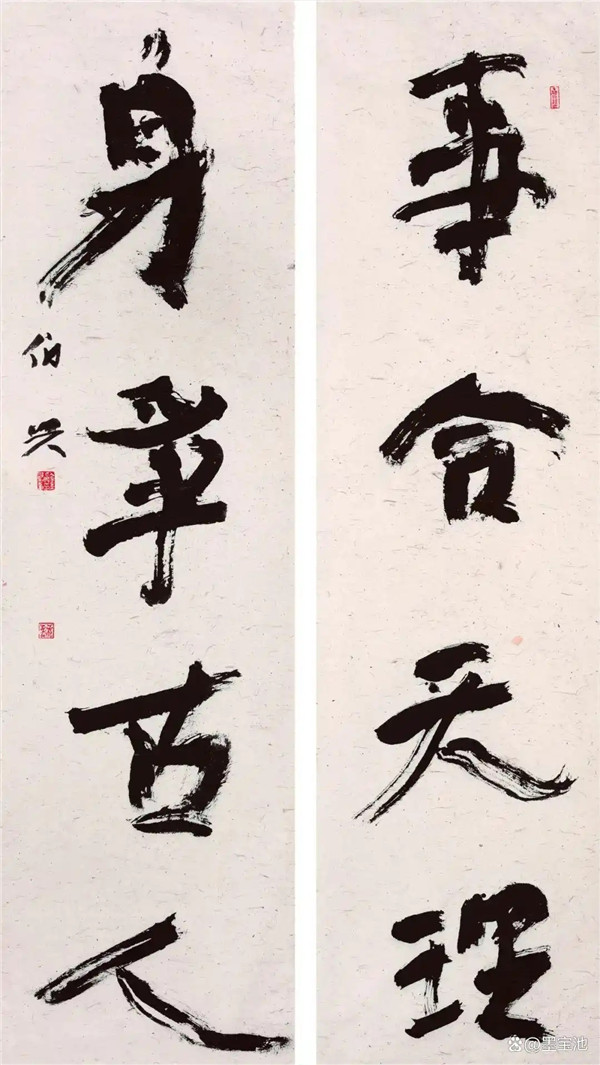 事合天理
身古人
伯兴
@墨宝池